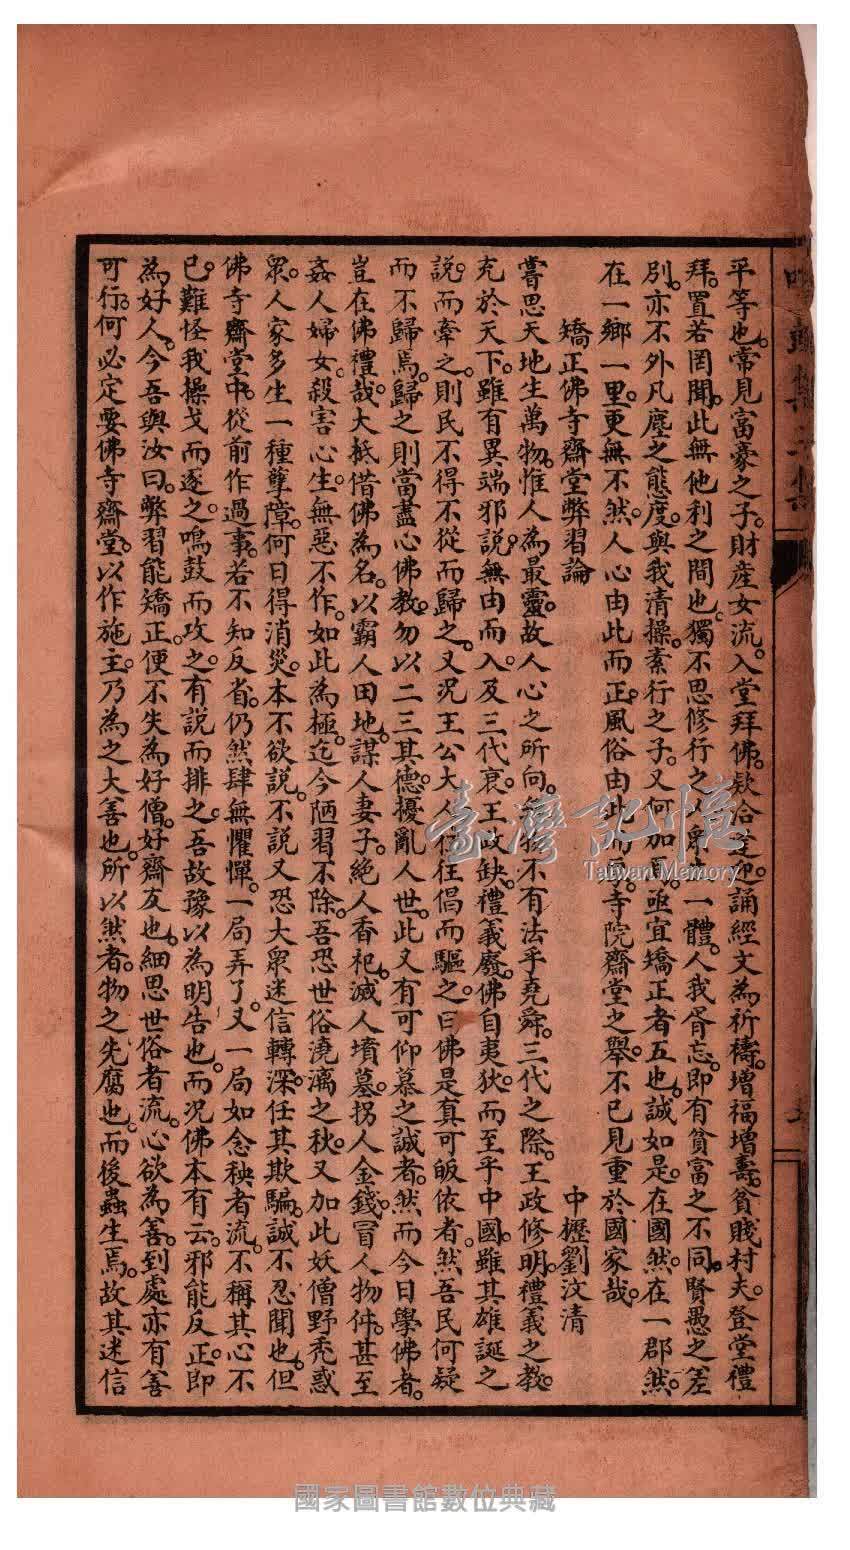 平等也。常見富豪之子。財產女流。入堂拜佛。欵洽迎。誦經文為祈禱。增福增壽。貧賤村夫。登堂禮
拜。置若罔聞。此無他利之間也。獨不思修行之人。一體。人我胥忘。即有貧富之不同。賢愚之差
別。亦不外凡塵之態度。與我清操。素行之子。又何加焉。亟宜矯正者五也。誠如是。在國然。在一郡然。
在一鄉一里。更無不然。人心由此而正。風俗由此而。寺院齋堂之舉。不已見重於國家哉。
矯正佛寺齋堂弊習論 中壢劉汶清
嘗思天地生萬物。惟人為最靈。故人心之所向。不有法乎堯舜。三代之際。王政修明。禮義之教。
充於天下。雖有異端邪說。無由而入。及三代衰。王政缺。禮義廢。佛自夷狄。而至乎中國。雖其雄誕之
說。而牽之。則民不得不從而歸之。又況王公大人往往倡而驅之。曰佛是真可皈依者。然吾民何疑
而不歸焉。歸之則當盡心佛教。勿以二三其德。擾亂人世。此又有可仰慕之誠者。然而今日學佛者。
豈在佛禮哉。大抵借佛為名。以霸人田地。謀人妻子。絕人香祀。滅人墳墓。拐人金錢。冒人物件。甚至
姦人婦女。殺害心生。無惡不作。如此為極。迄今陋習不除。吾恐世俗澆漓之秋。又加此妖僧野禿惑
眾。人家多生一種孽障。何日得消災。本不欲說。不說又恐大眾迷信轉深。任其欺騙。誠不忍聞也。但
佛寺齋堂中。從前作過事。若不知反省。仍然肆無懼憚。一局弄了。又一局如念秧者流。不稱其心不
已。難怪我操戈而逐之。鳴鼓而攻之。有說而排之。吾故豫以為明告也。而况佛本有云。邪能反正。即
為好人。今吾與汝曰。弊習能矯正。便不失為好僧。好齋友也。細思世俗者流。心欲為善。到處亦有善
可行。何必定要佛寺齋堂。以作施主。乃為之大善也。所以然者。物之先腐也。而後蟲生焉。故其迷信
臺灣記憶
Taiwan Memory
國家圖書館數位典藏